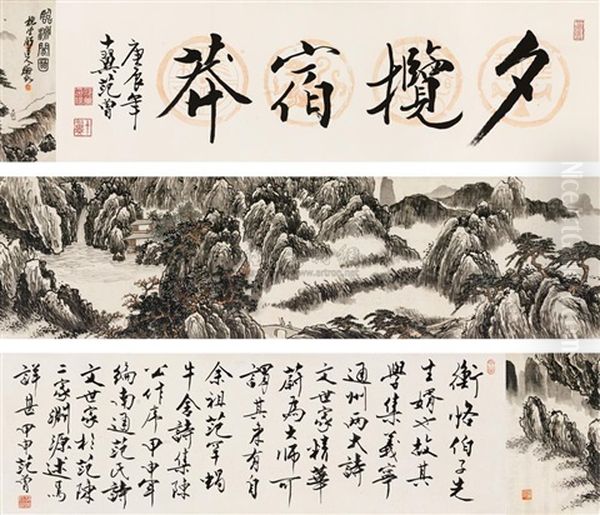 夕攬宿莽
庚辰年
十翼范曾
www.artron.net
衡恪伯子先
生婿也故其
學集義寧
通州兩大詩
文世家精華
蔚為大师可
謂其来有自
余祖范罕蝸
牛舍詩集陳
公作序甲申年
編南通范氏詩
文世家於范陳
二家淵源述焉
詳甚甲申范曾